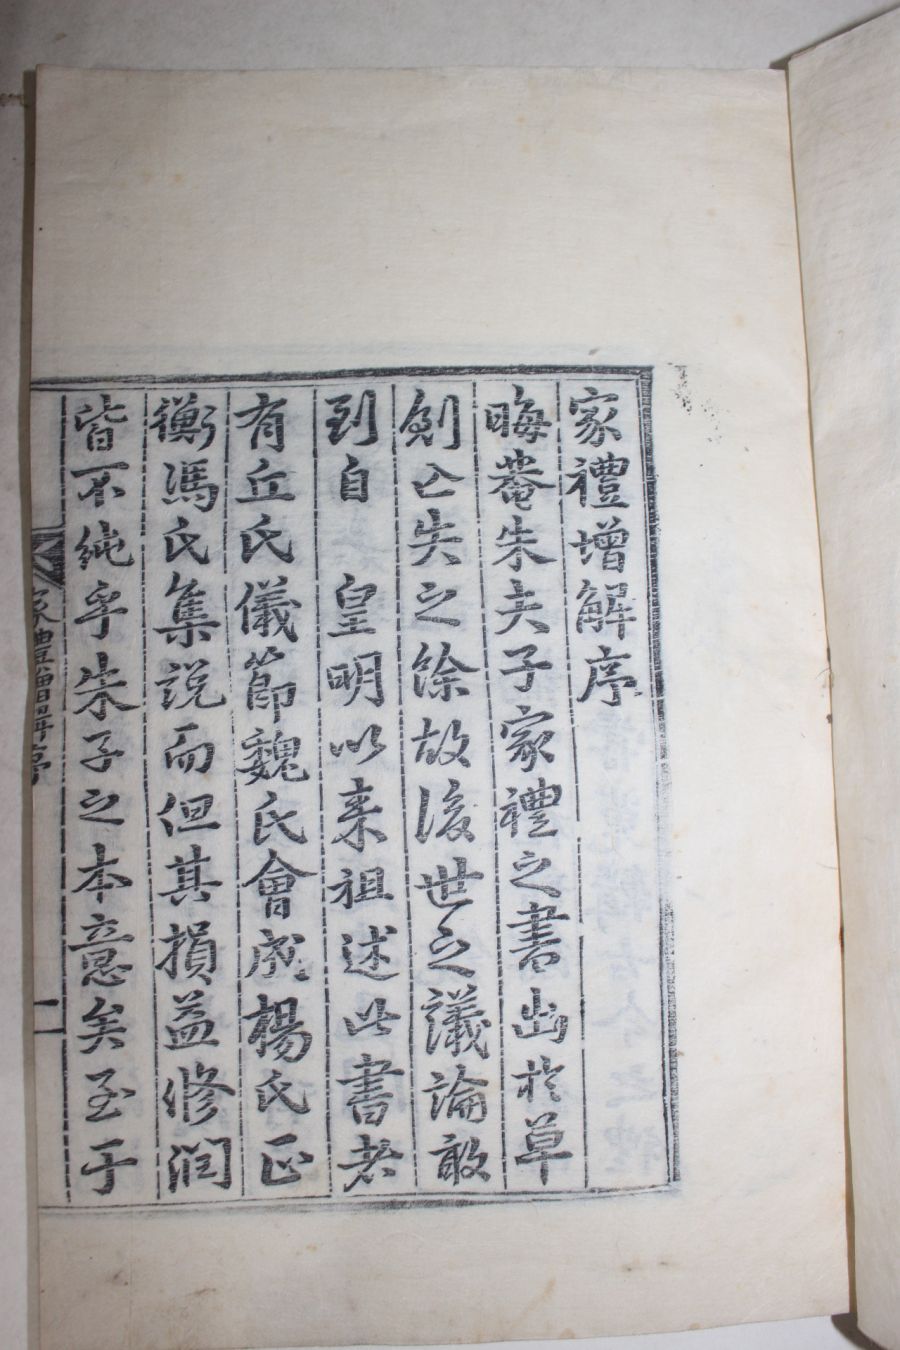 家禮增解序
晦菴朱夫子家禮之書出於草
創亡失之餘故後世之議論敢
到自 皇明以来祖述此書者
有丘氏儀節魏氏會成楊氏正
衡馮氏集説而但其損益修潤
皆不純乎朱子之本意矣至于
家禮增解序
一